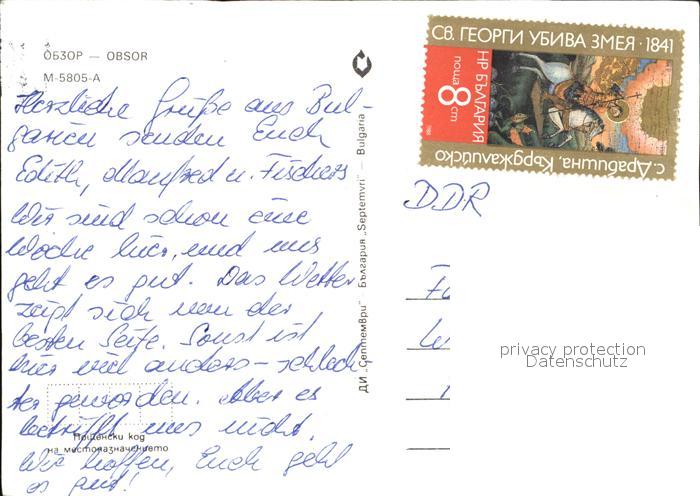 ОБЗОР — OBSOR
М-5805-А
Herzliche Grüße aus Bul-
garien senden Euch
Edith, Manfred u. Fischers
Wir sind schon eine
Woche hier, und uns
geht es gut. Das Wetter
zeigt sich von der
besten Seite. Sonst ist
hier viel anders – schlech
ter geworden. Aber es
betrifft uns nicht.
Wir hoffen, Euch geht
es gut!
Пощенски код
на местоназначението
ДИ „Септември" България „Septemvri" — Bulgaria
СВ. ГЕОРГИ УБИВА ЗМЕЯ · 1841
НР БЪЛГАРИЯ
поща 8 ст
1988
с. Драбишна, Кърджалийско
DDR
privacy protection
Datenschutz